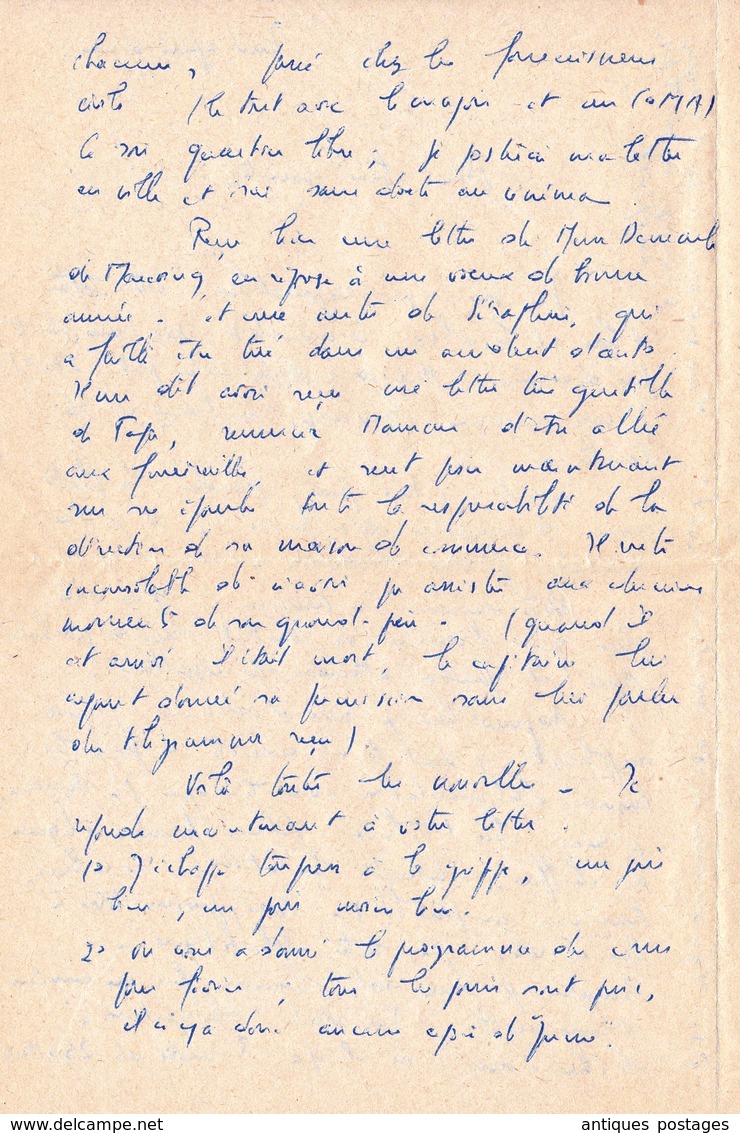 chacun, passé chez les fournisseurs
civils (le tout avec le major et un
Ce soir quartier libre; je posterai ma lettre
en ville et irai sans doute au cinéma
Reçu hier une lettre de Mme
de en réponse à une de bonne
année. et une autre de Séraphin, qui
a failli être tué dans un accident d'auto.
Il me dit avoir reçu une lettre très gentille
de Papa, remercie Maman d'être allée
aux funérailles, et sent peser maintenant
sur ses épaules toute la responsabilité de la
direction de sa maison de commerce. Il
inconsolable de n'avoir pu assister aux derniers
moments de son grand-père. (quand il
est arrivé il était mort, le capitaine lui
ayant donné sa permission sans lui parler
du télégramme reçu)
Voilà toutes les nouvelles. Je
réponds maintenant à votre lettre.
1° J'échappe toujours à la grippe, une fois
bien, une fois moins bien.
2° On nous a donné le programme des cours
pour février, tous les jours sont pris,
il n'y a donc aucun espoir de "perme".
delcampe.net
antiques postages